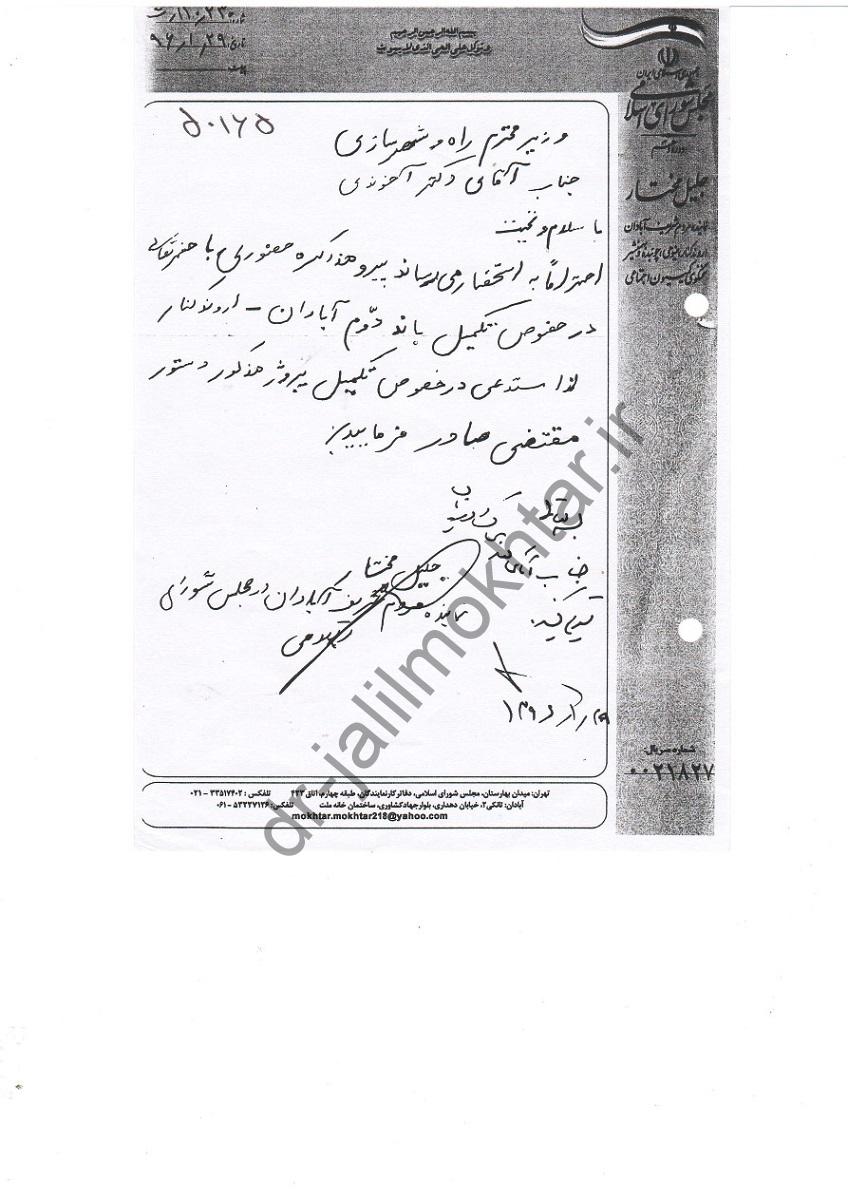 بسم الله الرحمن الرحیم
و توکل علی الحی الذی لا یموت
شماره: ۱۱۰٫۲۳۰
تاریخ: ۹۶٫۱٫۲۹
جمهوری اسلامی ایران
مجلس شورای اسلامی
جلیل مختار
نماینده مردم شریف آبادان
سخنگوی کمیسیون اجتماعی
۵۰۱۶۵
وزیر محترم راه و شهرسازی
جناب آقای دکتر آخوندی
با سلام و تحیت
احتراماً به استحضار می رساند پیرو مذاکره حضوری با حضرتعالی
در خصوص تکمیل باند دوّم آبادان – اروندکنار
لذا استدعی در خصوص تکمیل پروژه مذکور دستور
مقتضی صادر فرمایید
جلیل مختار
نماینده مردم شریف آبادان در مجلس شورای
اسلامی
جناب آقای
۱۳۹۶
شماره سریال:
۰۰۲۱۸۲۷
تهران: میدان بهارستان، مجلس شورای اسلامی، دفاتر کار نمایندگان، طبقه چهارم، اتاق ۴۴۳ تلفکس: ۳۳۵۱۷۴۰۲ – ۰۲۱
آبادان: تانکی۲، خیابان دهداری، بلوار جهاد کشاورزی، ساختمان خانه ملت تلفکس: ۵۳۲۲۷۱۲۶ – ۰۶۱
mokhtar.mokhtar218@yahoo.com
dr-jalilmokhtar.ir